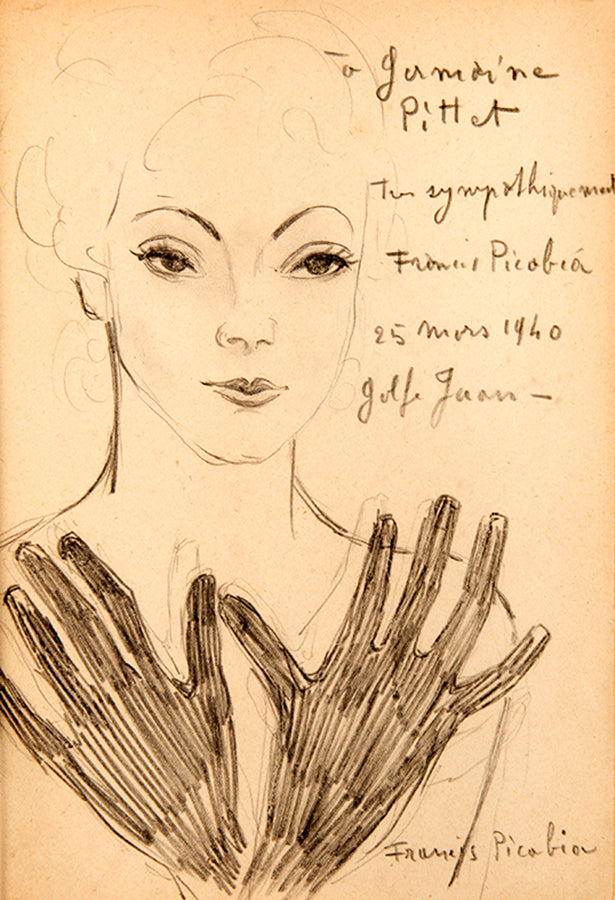 à Germaine
Pittet
Très sympathiquement
Francis Picabia
25 mars 1940
Golfe Juan –
Francis Picabia